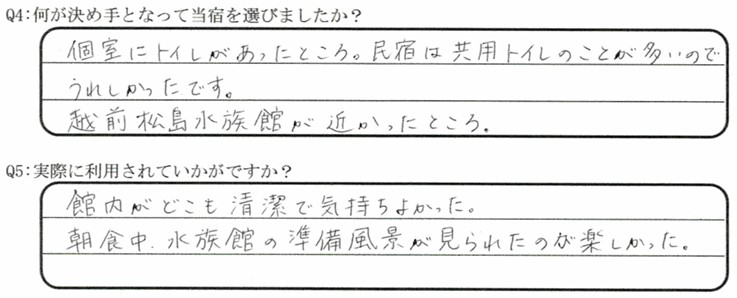 Q4:何が決め手となって当宿を選びましたか？
個室にトイレがあったところ。民宿は共用トイレのことが多いので
うれしかったです。
越前松島水族館が近かったところ。
Q5:実際に利用されていかがですか？
館内がどこも清潔で気持ちよかった。
朝食中、水族館の準備風景が見られたのが楽しかった。